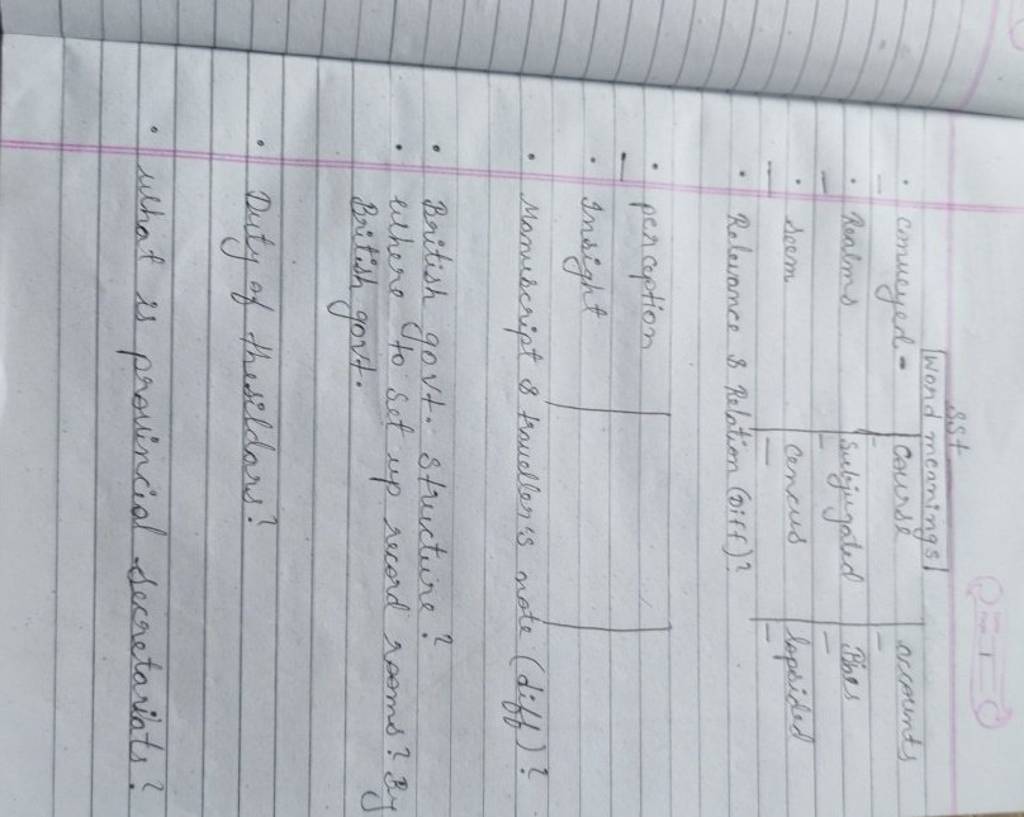 SST
Word meanings
• conveyed - course accounts
• Realms subjugated Bias
• Seem cencus lopsided
• Relevance & Relation (Diff)?
• perception
• Insight
• Manuscript & traveller's note (diff)?
• British govt. structure?
• where to set up record rooms? By
British govt.
• Duty of thesildars?
• what is provincial secretariats?